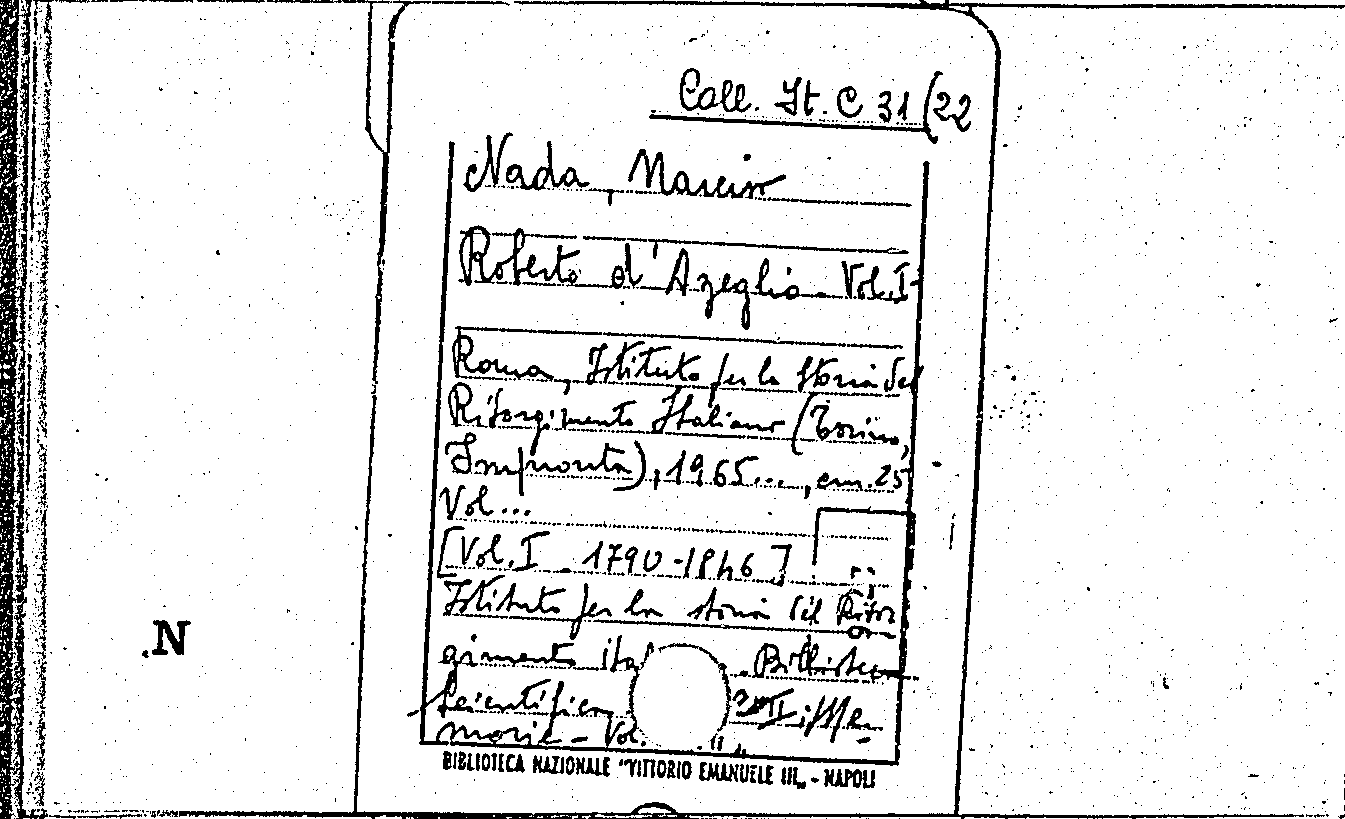 Coll. It. C 31 (22
Nada, Narciso
Roberto d'Azeglio - Vol. I-
Roma, Istituto per la Storia del
Risorgimento Italiano (Torino,
Impronta), 1965..., cm. 25
Vol...
[Vol. I - 1790-1846]
Istituto per la storia del Risor
gimento ital . Biblioteca
Scientifica II: Me
morie - Vol.
N
BIBLIOTECA NAZIONALE "VITTORIO EMANUELE III„ - NAPOLI